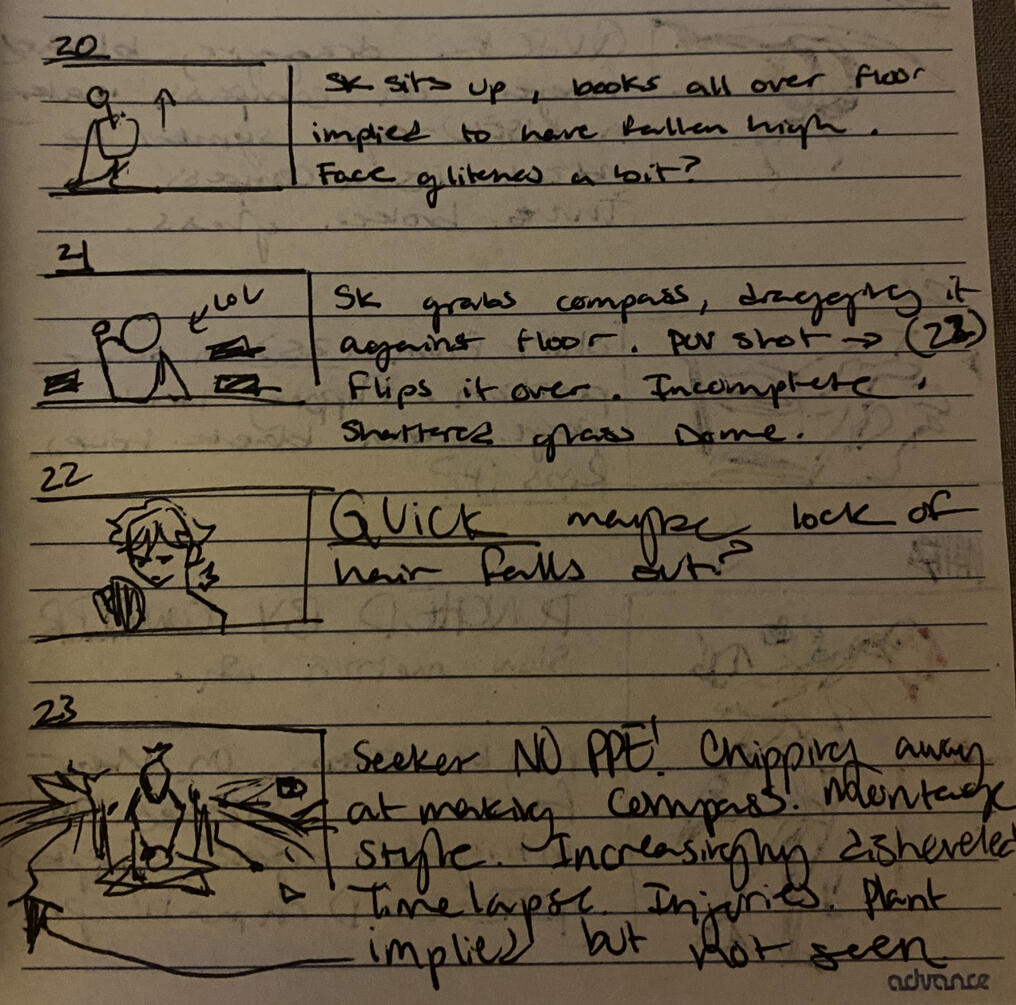 20
Sk sits up, books all over floor
implied to have fallen high.
Face glitches a bit?
21
LOL
Sk grabs compass, dragging it
against floor. POV shot → (22)
Flips it over. Incomplete,
Shattered glass Dome.
22
QUICK maybe lock of
hair falls out?
23
Seeker NO PPE! Chipping away
at making compass! Montage
style. Increasingly disheveled
Timelapse. Injuries. Plant
implied but not seen
advance